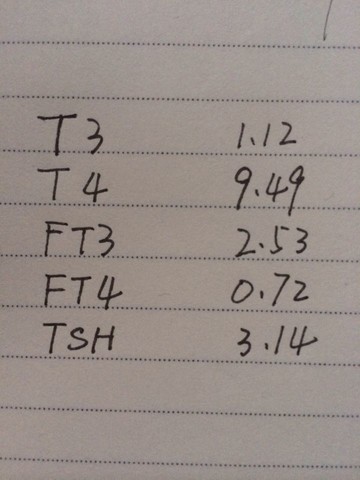 T3 1.12
T4 9.49
FT3 2.53
FT4 0.72
TSH 3.14